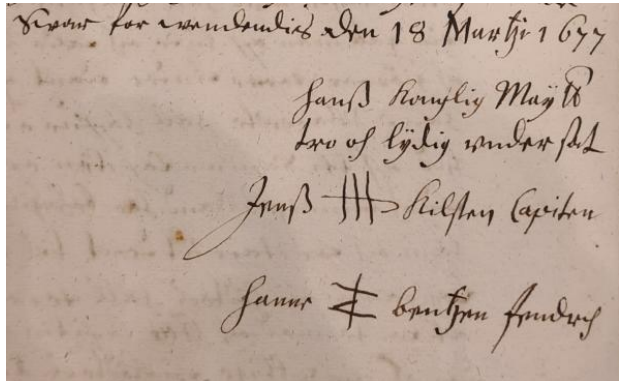 Swar for wendendies den 18 Martzi 1677
hanß Konglig Maÿtt
tro och lÿdig vnder såt
Jenß Kilsten Capiten
hanns bentzen fendrich